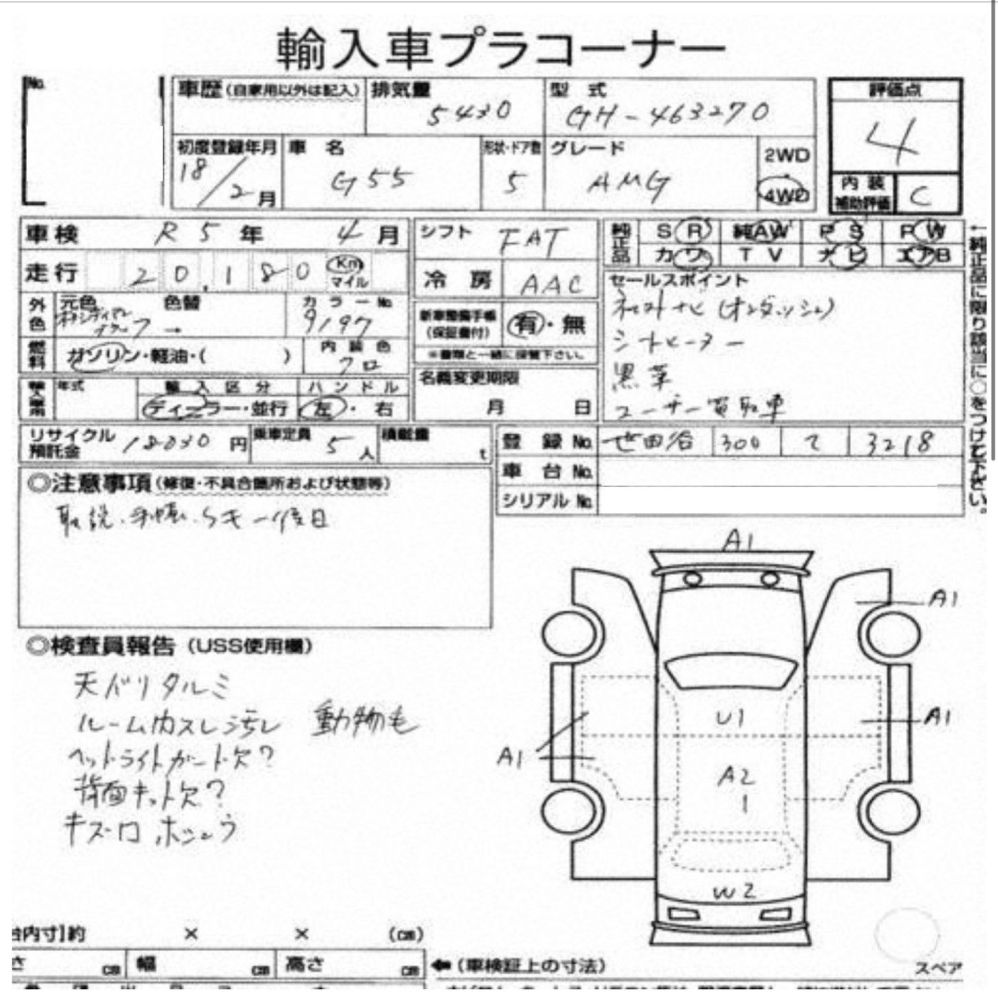 輸入車プラコーナー
No.
車歴 (自家用以外は記入) 排気量 5430 型式 GH-463270 評価点 4
初度登録年月 18/2月 車名 G55 形状・ドア数 5 グレード AMG 2WD 4WD
内装補助評価 C
車検 R5年 4月 シフト FAT 純正品 SR 純AW PS PW
走行 20,180 Km マイル 冷房 AAC カワ TV ナビ エアB
外色 元色 色替 → カラーNo. 9197
新車整備手帳 (保証書付) 有・無
※書類と一緒に保管下さい。
セールスポイント
シートヒーター
黒革
ユーザー買取車
燃料 ガソリン・軽油・( ) 内装色 クロ
年式 輸入区分 ディーラー・並行 ハンドル 左・右
名義変更期限 月 日
リサイクル預託金 18030円 乗車定員 5人 積載量 t
登録No. 世田谷 300 て 3218
車台No.
シリアルNo.
←純正品に限り該当に○をつけて下さい。
◎注意事項 (修復・不具合箇所および状態等)
◎検査員報告 (USS使用欄)
天バリタルミ
ルーム内スレ汚レ 動物毛
ヘッドライトガード欠?
背面キット欠?
キズ・ロ ホシュウ
A1
A1
A1
A1
U1
A2
1
W2
台内寸]約 × × (cm)
さ cm 幅 cm 高さ cm
←(車検証上の寸法)
スペア